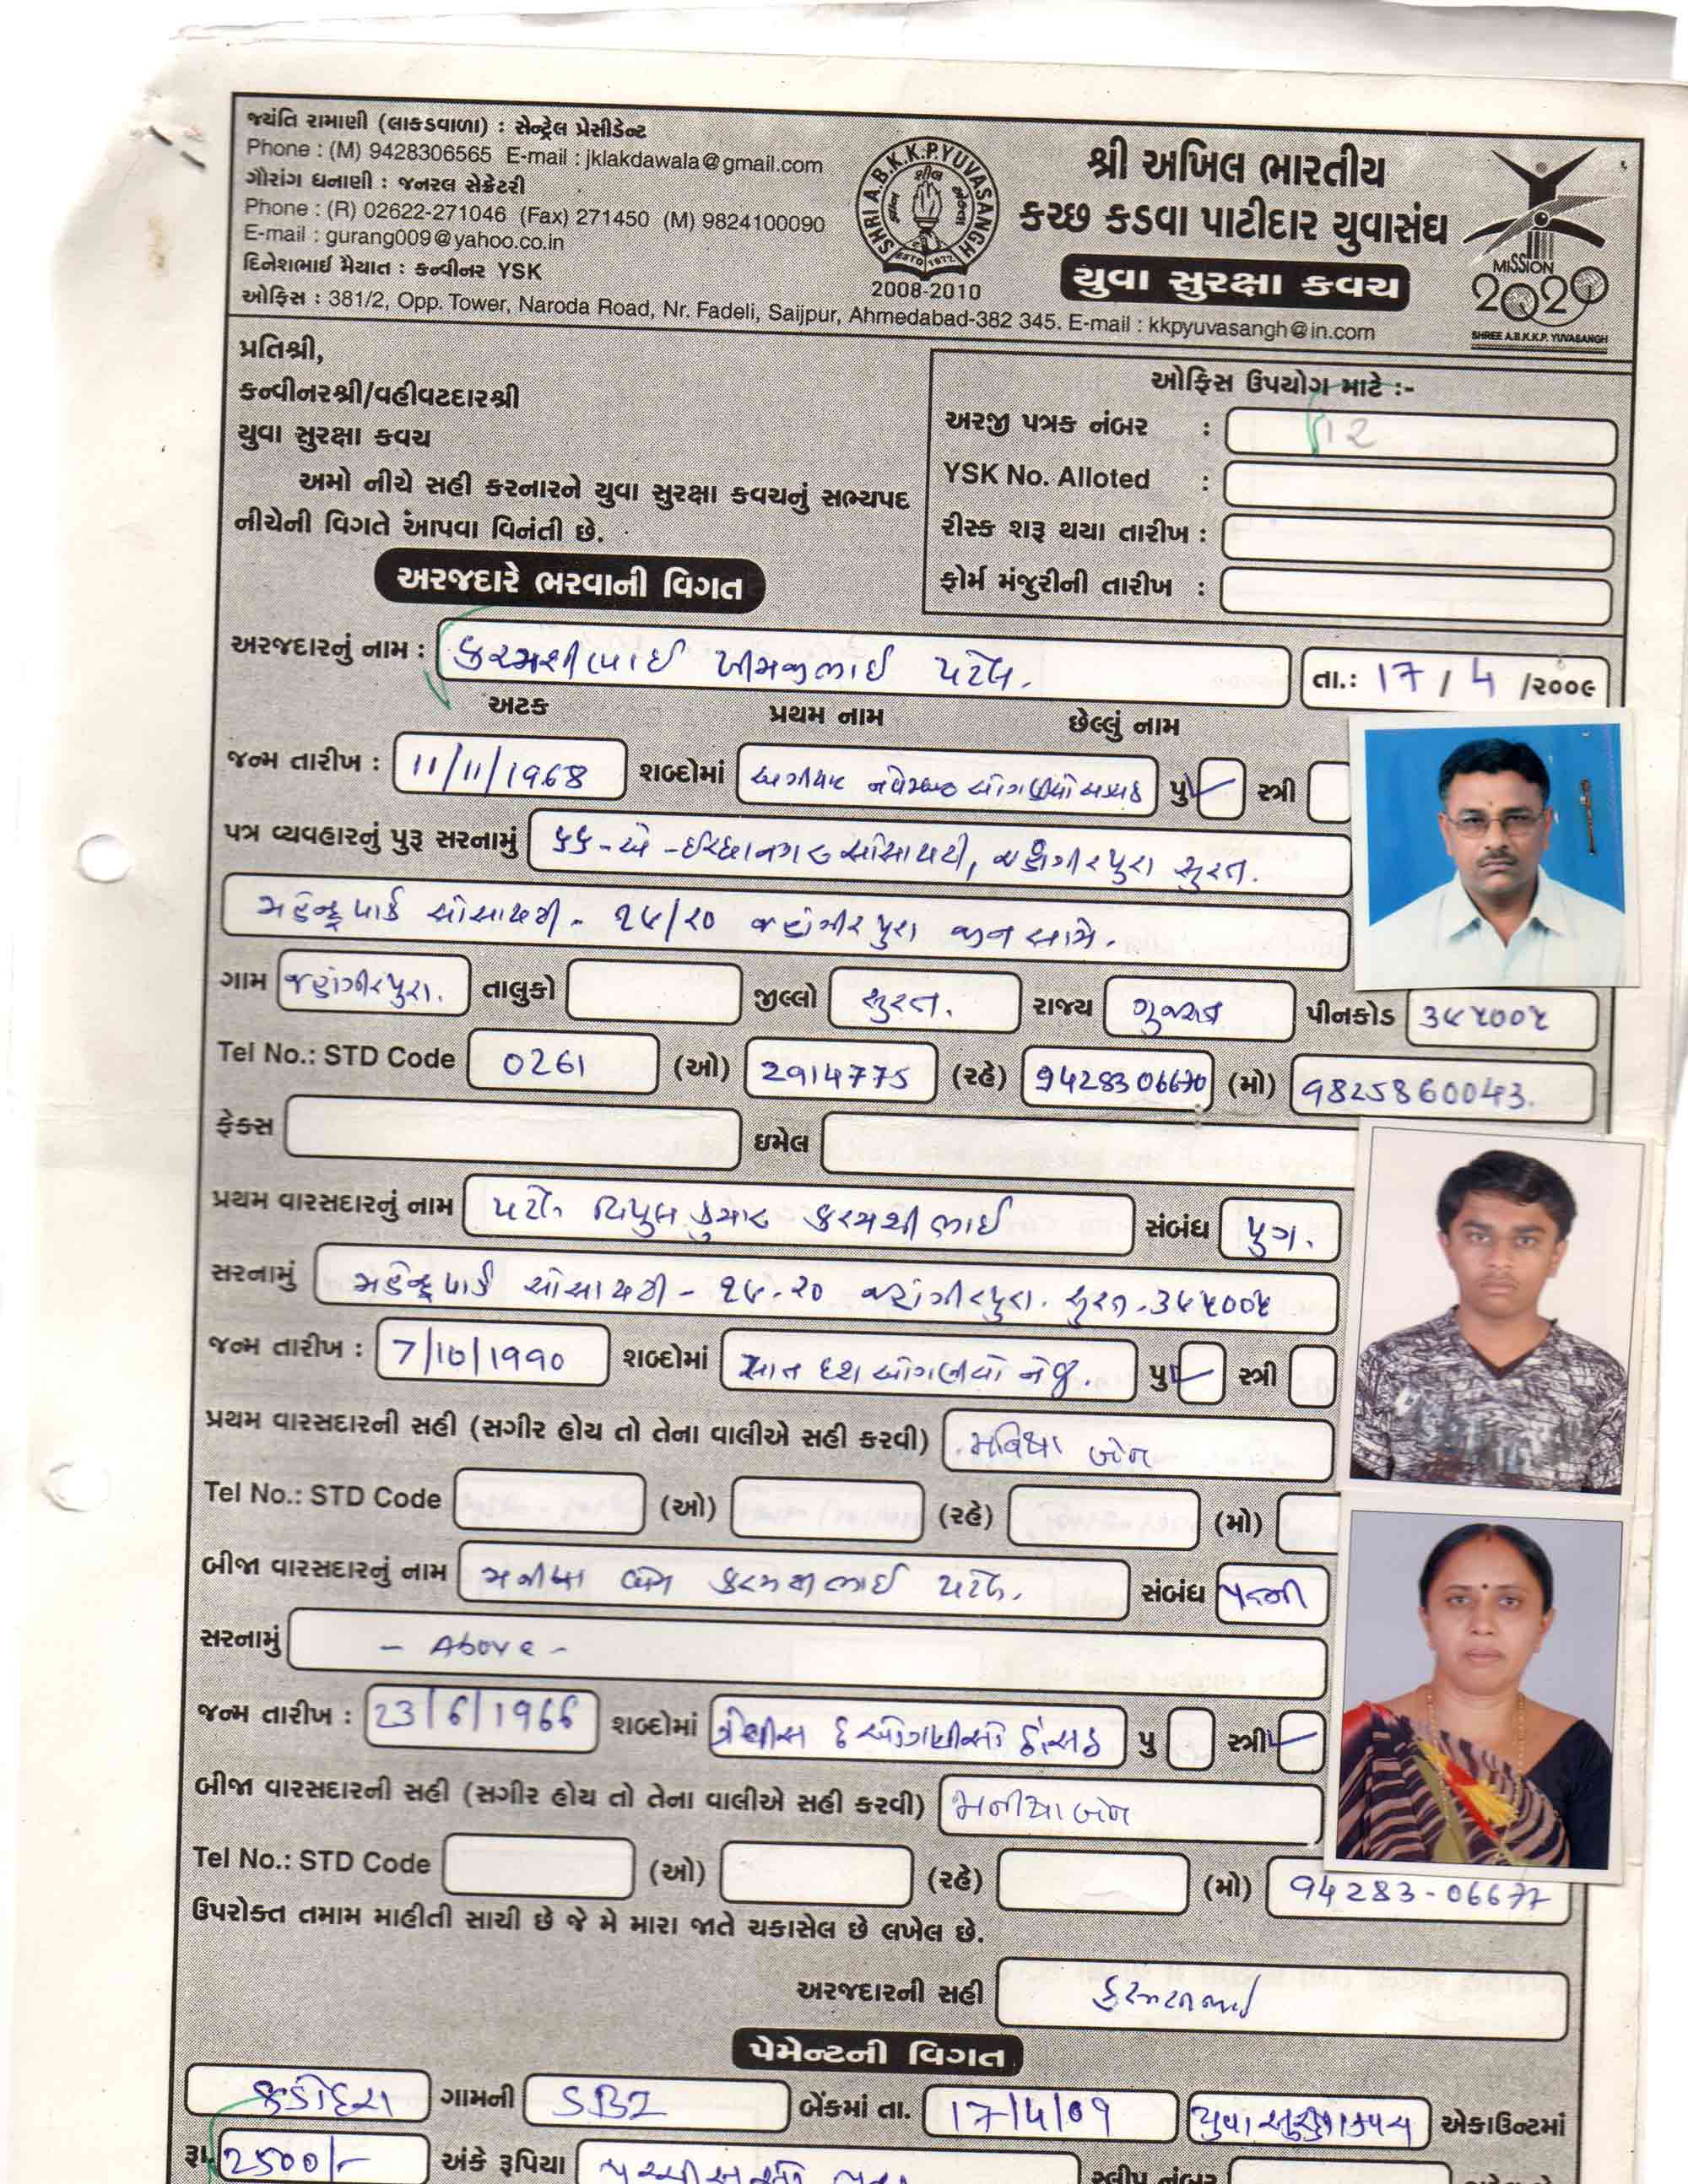 જયંતિ રામાણી (લાકડવાળા) : સેન્ટ્રેલ પ્રેસીડેન્ટ
Phone : (M) 9428306565 E-mail : jklakdawala@gmail.com
ગૌરાંગ ધનાણી : જનરલ સેક્રેટરી
Phone : (R) 02622-271046 (Fax) 271450 (M) 9824100090
E-mail : gurang009@yahoo.co.in
દિનેશભાઈ મૈયાત : કન્વીનર YSK
ઓફિસ : 381/2, Opp. Tower, Naroda Road, Nr. Fadeli, Saijpur, Ahmedabad-382 345. E-mail : kkpyuvasangh@in.com
SHRI A.B.K.K.P.YUVASANGH
ESTD 1972
2008-2010
શ્રી અખિલ ભારતીય
કચ્છ કડવા પાટીદાર યુવાસંઘ
યુવા સુરક્ષા કવચ
MISSION
2020
SHREE A.B.K.K.P. YUVASANGH
પ્રતિશ્રી,
કન્વીનરશ્રી/વહીવટદારશ્રી
યુવા સુરક્ષા કવચ
અમો નીચે સહી કરનારને યુવા સુરક્ષા કવચનું સભ્યપદ
નીચેની વિગતે આપવા વિનંતી છે.
ઓફિસ ઉપયોગ માટે :-
અરજી પત્રક નંબર : 12
YSK No. Alloted :
રીસ્ક શરૂ થયા તારીખ :
ફોર્મ મંજુરીની તારીખ :
અરજદારે ભરવાની વિગત
અરજદારનું નામ : કરમશીભાઈ ખીમજીભાઈ પટેલ. તા.: 17 / 4 /૨૦૦૯
અટક પ્રથમ નામ છેલ્લું નામ
જન્મ તારીખ : 11/11/1968 શબ્દોમાં અગીયાર નવેમ્બર ઓગણીસો અડસઠ પુ સ્ત્રી
પત્ર વ્યવહારનું પુરૂ સરનામું ૬૬-એ-ઈચ્છાનગર સોસાયટી, જહાંગીરપુરા સુરત.
મહેન્દ્ર પાર્ક સોસાયટી - ૧૯/૨૦ જહાંગીરપુરા જીન સામે.
ગામ જહાંગીરપુરા. તાલુકો જીલ્લો સુરત. રાજ્ય ગુજરાત પીનકોડ ૩૯૫૦૦૫
Tel No.: STD Code 0261 (ઓ) 2914775 (રહે) 9428306670 (મો) 9825860043.
ફેક્સ ઇમેલ
પ્રથમ વારસદારનું નામ પટેલ વિપુલકુમાર કરમશીભાઈ સંબંધ પુત્ર.
સરનામું મહેન્દ્ર પાર્ક સોસાયટી - ૧૯-૨૦ જહાંગીરપુરા. સુરત-૩૯૫૦૦૫
જન્મ તારીખ : 7/10/1990 શબ્દોમાં સાત દશ ઓગણીસો નેવુ. પુ સ્ત્રી
પ્રથમ વારસદારની સહી (સગીર હોય તો તેના વાલીએ સહી કરવી) બેન
Tel No.: STD Code (ઓ) (રહે) (મો)
બીજા વારસદારનું નામ મનીષા બેન કરમશીભાઈ પટેલ. સંબંધ પત્ની
સરનામું - Above -
જન્મ તારીખ : 23/6/1966 શબ્દોમાં ત્રેવીસ ૬ ઓગણીસો છાસઠ પુ સ્ત્રી
બીજા વારસદારની સહી (સગીર હોય તો તેના વાલીએ સહી કરવી) મનીષાબેન
Tel No.: STD Code (ઓ) (રહે) (મો) 94283-06677
ઉપરોક્ત તમામ માહીતી સાચી છે જે મે મારા જાતે ચકાસેલ છે લખેલ છે.
અરજદારની સહી
પેમેન્ટની વિગત
કડોદરા ગામની SBI બેંકમાં તા. 17/4/09 યુવા સુરક્ષા કવચ એકાઉન્ટમાં
રૂા. 2500/- અંકે રૂપિયા સ્લીપ નંબર